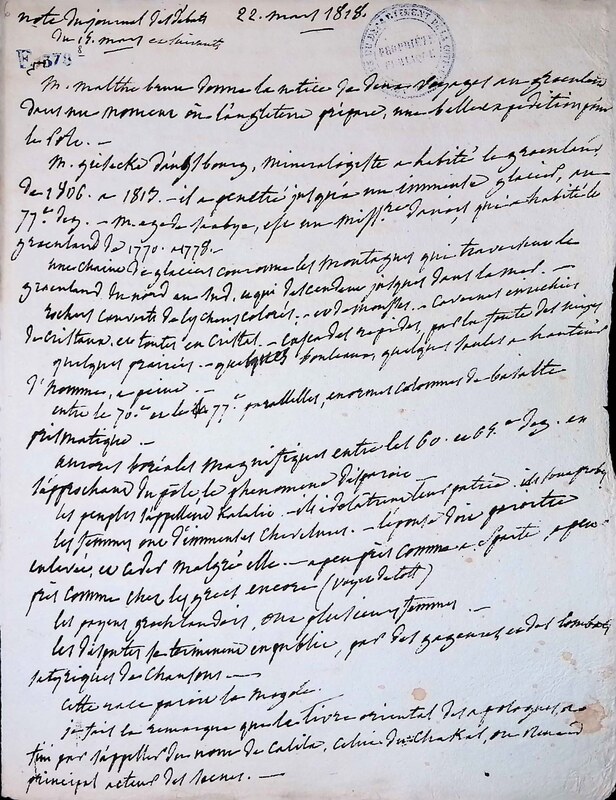 note du journal des débats 22. mars 1818.
du 19. mars et suivants
579
M. malthe brun donne la notice de deux voyages au groenland
dans un moment où l'angleterre prépare, une belle expédition pour
le Pole. —
M. gesecke d'augsbourg, mineralogiste a habité le groenland
de 1806 a 1813. — il a penetré jusqu'a un immense glacier, au
77.e deg. — M. egede saabye, est un missre danois, qui a habité le
groenland de 1770. a 1778. —
une chaine de glaciers couronne les montagnes qui traversent le
groenland du nord au sud, et qui descendent jusques dans la mer. —
rochers couverts de lychens colorés. — et de mousses. — cavernes enrichies
de cristaux, et toutes en cristal. — cascades rapides, par la fonte des neiges
quelques prairies. — quelques bouleaux, quelques saules a hauteur
d'homme, a peine. —
entre le 70.e et le 77.e paralleles, enormes colonnes de basalte
prismatique. —
aurores boréales magnifiques entre les 60. et 65.e deg. en
s'approchant du pôle le phenomene disparoit —
les peuples s'appellent Kalalis. — ils idolatrent leur patrie. ils sont
les femmes ont d'immenses chevelures. — l'épouse doit paroitre
enlevée, et ceder malgré elle. — a peu près comme a sparte, a peu
près comme chez les grecs encore (voyez de tott)
les payens groenlandois, ont plusieurs femmes. —
les disputes se terminent en public, par des gageures et des combats
satyriques de chansons —
Cette race paroit la mogole.
je fais la remarque que le livre oriental des apologues, a
fini par s'appeller du nom de Calila, celui du chakal, ou renard
principal acteur des scenes. —